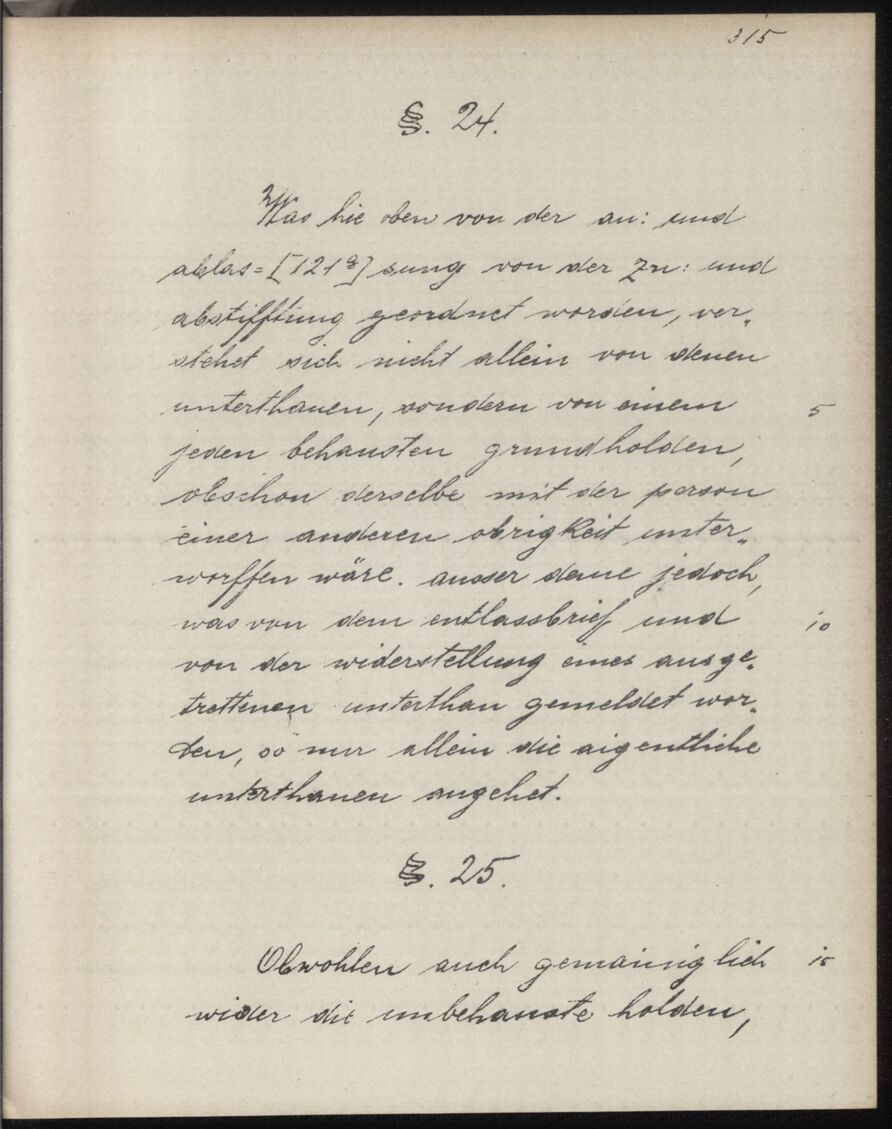 315
§. 24.
Was hie oben von der an: und
ablas=[121a]sung von der zu: und
abstifftung geordnet worden, ver„
stehet sich nicht allein von denen
unterthanen, sondern von einem 5
jeden behausten grundholden,
obschon derselbe mit der person
einer anderen obrigkeit unter„
worffen wäre. ausser deme jedoch,
was von dem entlassbrief und 10
von der widerstellung eines ausge„
trettenen unterthan gemeldet wor„
den, so nur allein die aigentliche
unterthanen angehet.
§. 25.
Obwohlen auch gemainiglich 15
wider die unbehauste holden,